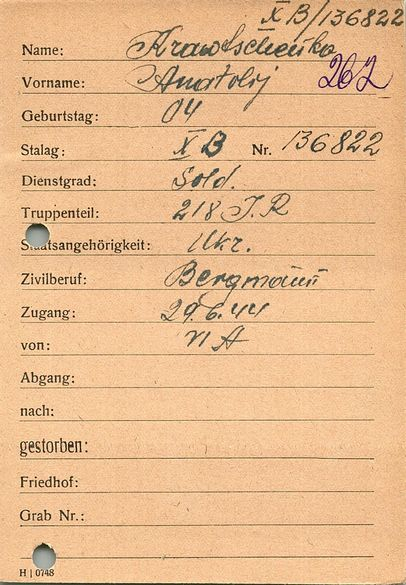 X B/136822
Name: Krawtschenko
Vorname: Anatolij 262
Geburtstag: 04
Stalag: X B Nr. 136822
Dienstgrad: Sold.
Truppenteil: 218 J.R
Staatsangehörigkeit: Ukr.
Zivilberuf: Bergmann
Zugang: 29.6.44
von: VI A
Abgang:
nach:
gestorben:
Friedhof:
Grab Nr.:
H | 0748